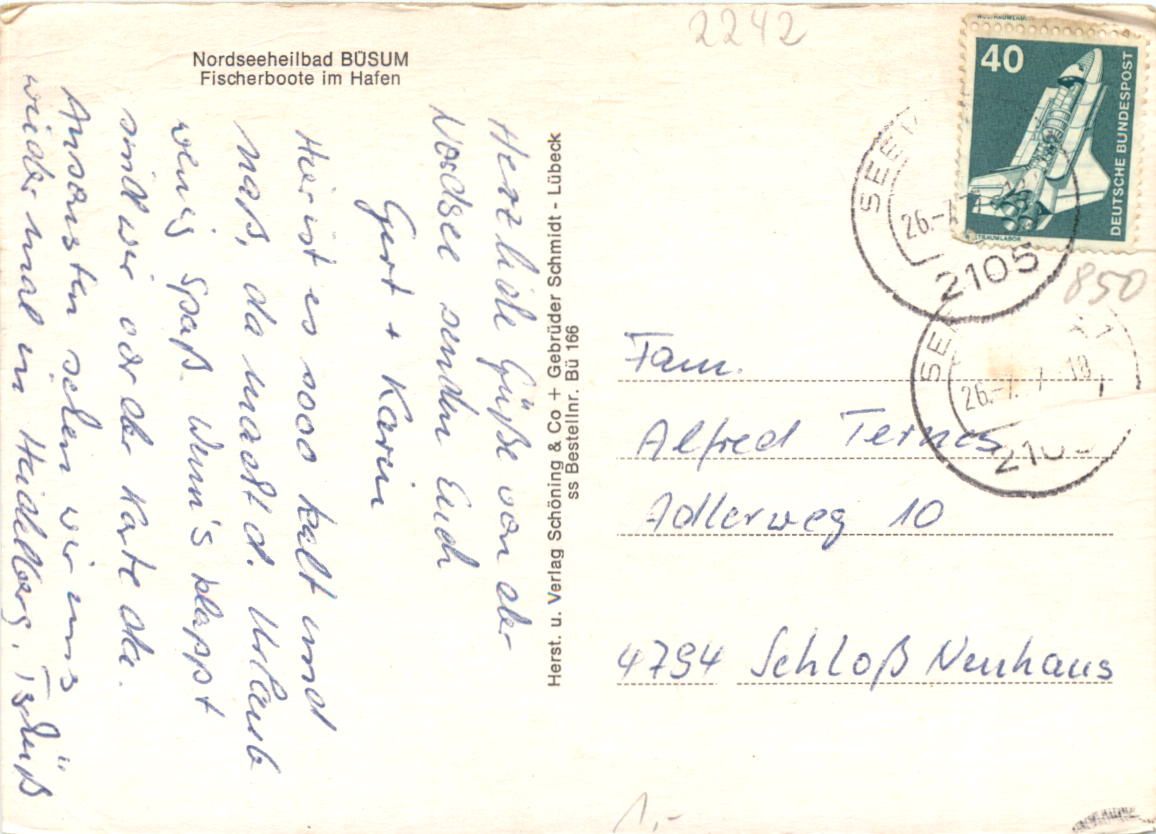 Nordseeheilbad BÜSUM
Fischerboote im Hafen
Herzliche Grüße von der
Nordsee senden Euch
Gert + Karin
Hier ist es sooo kalt und
naß, da macht d. Urlaub
wenig Spaß. Wenn's klappt
sind wir vor der Karte da.
Ansonsten sehen wir uns
wieder mal in Heidelberg. Tschüß
Herst. u. Verlag Schöning & Co + Gebrüder Schmidt - Lübeck
ss Bestellnr. Bü 166
2242
40
DEUTSCHE BUNDESPOST
WELTRAUMLABOR
26.-7.
2105
850
26.-7.
Fam.
Alfred Ternes
Adlerweg 10
4794 Schloß Neuhaus
1,-